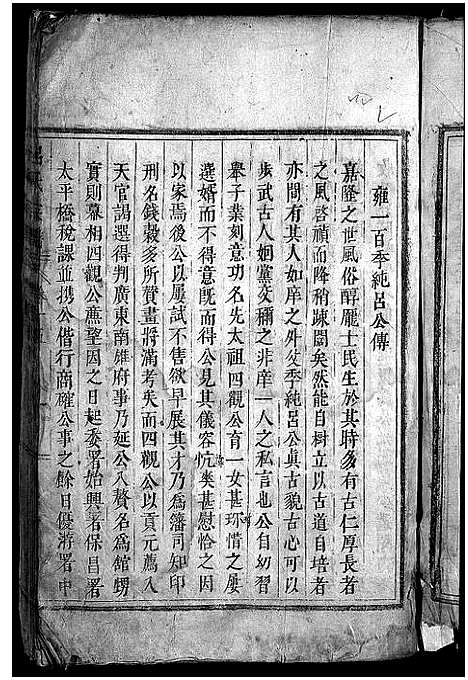 雍一百季純呂公傳
嘉隆之世風俗醇龐士民生於其時多有古仁厚長者
之風啓禎而降稍疎闊矣然能自樹立以古道自培者
亦間有其人如庠之外父季純呂公真古貌古心可以
步武古人姻黨交稱之非庠一人之私言也公自幼習
舉子業刻意功名先太祖四觀公育一女甚珎惜之屢
選婿而不得意既而得公見其儀容忼爽甚慰恰之因
以家焉後公以屢試不售欲早展其才乃為藩司知印
刑名錢穀多所贊畫將滿考矣而四觀公以貢元薦入
天官謁選得判廣東南雄府事乃延公入贅名為館甥
實則幕相四觀公藨望因之日起委署始興署保昌署
太平橋稅課並携公偕行商確公事之餘日優游署中